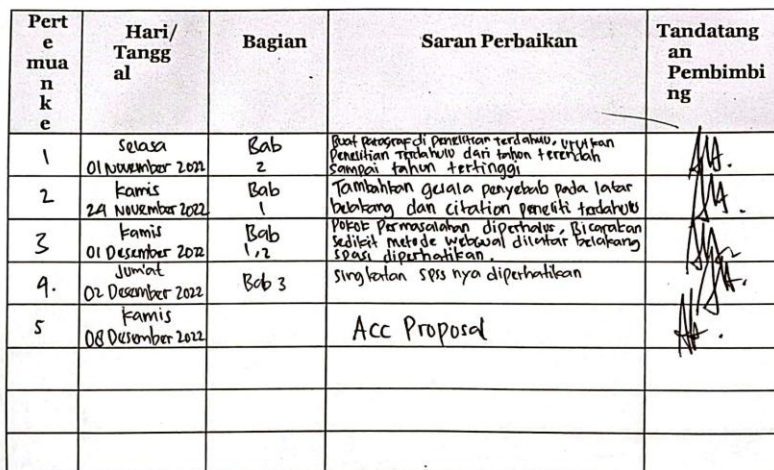 Pert
e
mua
n
k
e
Hari/
Tangg
al
Bagian
Saran Perbaikan
Tandatang
an
Pembimbi
ng
1
Selasa
01 November 2022
Bab
2
Buat Paragraf di Penelitian terdahulu, urutkan
Penelitian Terdahulu dari tahun terendah
sampai tahun tertinggi
2
Kamis
24 November 2022
Bab
1
Tambahkan gejala penyebab pada latar
belakang dan citation peneliti terdahulu
3
Kamis
01 Desember 2022
Bab
1,2
Pokok Permasalahan diperhalus, Bicarakan
sedikit metode webqual dilatar belakang
spasi diperhatikan.
4.
Jum'at
02 Desember 2022
Bab 3
singkatan spss nya diperhatikan
5
Kamis
08 Desember 2022
Acc Proposal